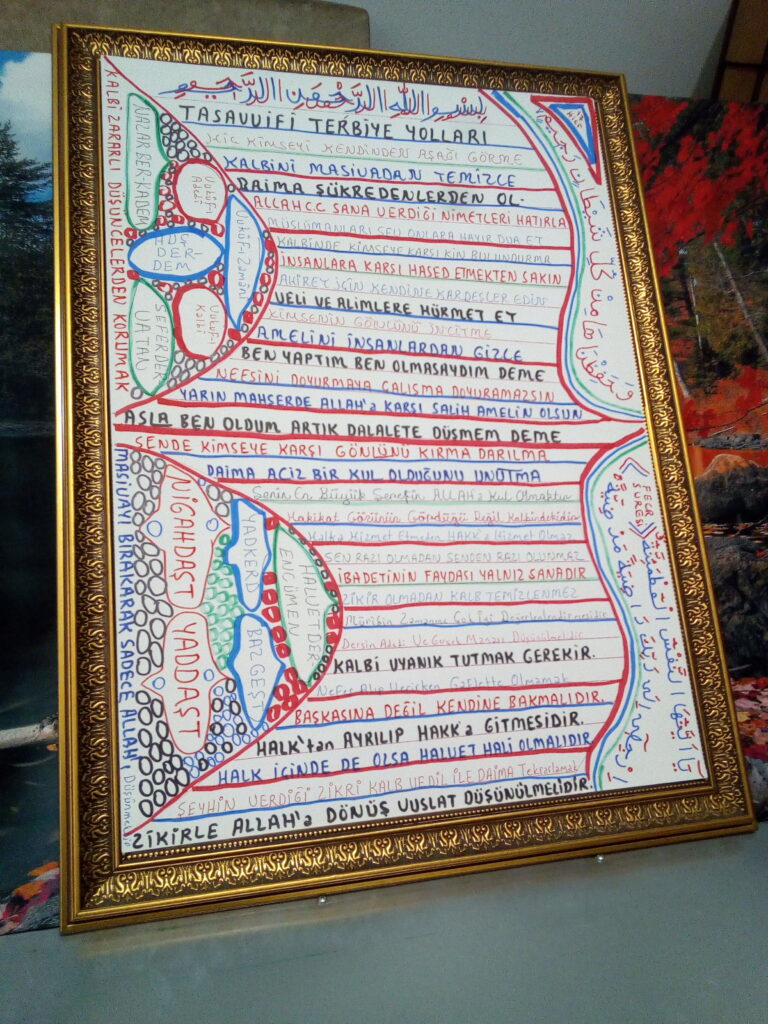 بِسْمِ اللَّهِ الرَّحْمَنِ الرَّحِيمِ
TASAVVİFİ TERBİYE YOLLARI
HİÇ KİMSEYİ KENDİNDEN AŞAĞI GÖRME
KALBİNİ MASİVADAN TEMİZLE
DAİMA ŞÜKREDENLERDEN OL.
ALLAHCC SANA VERDİĞİ NİMETLERİ HATIRLA
MÜSLÜMANLARI SEV ONLARA HAYIR DUA ET
KALBİNDE KİMSEYE KARŞI KİN BULUNDURMA
İNSANLARA KARŞI HASED ETMEKTEN SAKIN
AHİRET İÇİN KENDİNE KARDEŞLER EDİN
VELİ VE ALİMLERE HÜRMET ET
KİMSENİN GÖNLÜNÜ İNCİTME
AMELİNİ İNSANLARDAN GİZLE
BEN YAPTIM BEN OLMASAYDIM DEME
NEFSİNİ DOYURMAYA ÇALIŞMA DOYURAMAZSIN
YARIN MAHŞERDE ALLAH'a KARŞI SALİH AMELİN OLSUN
ASLA BEN OLDUM ARTIK DALALETE DÜŞMEM DEME
SENDE KİMSEYE KARŞI GÖNLÜNÜ KIRMA DARILMA
DAİMA ACİZ BİR KUL OLDUĞUNU UNUTMA
Senin En Büyük Şerefin ALLAH'a Kul Olmaktır
Hakikat Gözünün Gördüğü Değil Kalbindekidir
Halka Hizmet Etmeden HAKK'a Hizmet Olmaz
SEN RAZI OLMADAN SENDEN RAZI OLUNMAZ
İBADETİNİN FAYDASI YALNIZ SANADIR
ZİKİR OLMADAN KALB TEMİZLENMEZ
Müribin Zamanını Çok İyi Değerlendirmelidir
Dersin Adeti Ve Güzel Manası Düşünülmelidir
KALBİ UYANIK TUTMAK GEREKİR.
Nefes Alıp Verirken Gaflette Olmamak
BAŞKASINA DEĞİL KENDİNE BAKMALIDIR.
HALK'tan AYRILIP HAKK'a GİTMESİDİR.
HALK İÇİNDE DE OLSA HALVET HALİ OLMALIDIR
ŞEYHİN VERDİĞİ ZİKRİ KALB VE DİL İLE DAİMA Tekrarlamak
ZİKİRLE ALLAH'a DÖNÜŞ VUSLAT DÜŞÜNÜLMELİDİR.
KALBİ ZARARLI DÜŞÜNCELERDEN KORUMAK
NAZAR BER-KADEM
Vukûf-ı Adedi
HUŞ DER-DEM
Vukûf-ı Zamânî
Vukûf-ı Kalbi
SEFER DER VATAN
MASİVAYI BIRAKARAK SADECE ALLAH'ı Düşünmelidir
NİGAHDAŞT
YADKERD
HALVET DER ENCÜMEN
YADDAŞT
BAZGEŞT
HİCR
وَحَفِظْنَاهَا مِنْ كُلِّ شَيْطَانٍ رَجِيمٍ
FECR SURESİ
يَا أَيَّتُهَا النَّفْسُ الْمُطْمَئِنَّةُ
ارْجِعِي إِلَى رَبِّكِ رَاضِيَةً مَرْضِيَّةً